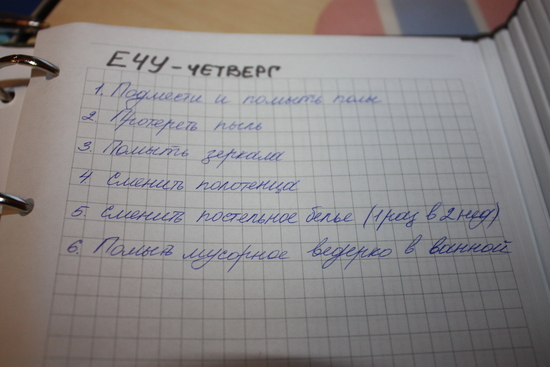 ЕЧУ - ЧЕТВЕРГ
1. Подмести и помыть полы
2. Протереть пыль
3. Помыть зеркала
4. Сменить полотенца
5. Сменить постельное белье (1 раз в 2 нед)
6. Помыть мусорное ведерко в ванной